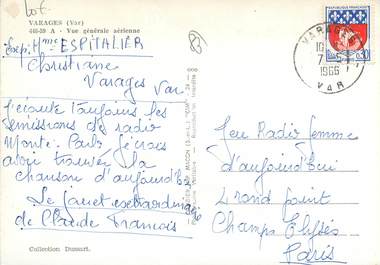 Lot.
VARAGES (Var)
446-39 A - Vue générale aérienne
Exp: Mme ESPITALIER
Christiane
Varages Var
j'écoute toujours les
émissions de radio
Monte. Carlo je crois
avoir trouver la
chanson d'aujourd'hui
Le jouet extraordinaire
de Claude Francois
Collection Dussart.
REPUBLIQUE FRANÇAISE
0,30
VARAGES
7
1966
VAR
Jeu Radio femme
d'aujourd'hui
1 rond point
Champs Elysés
Paris